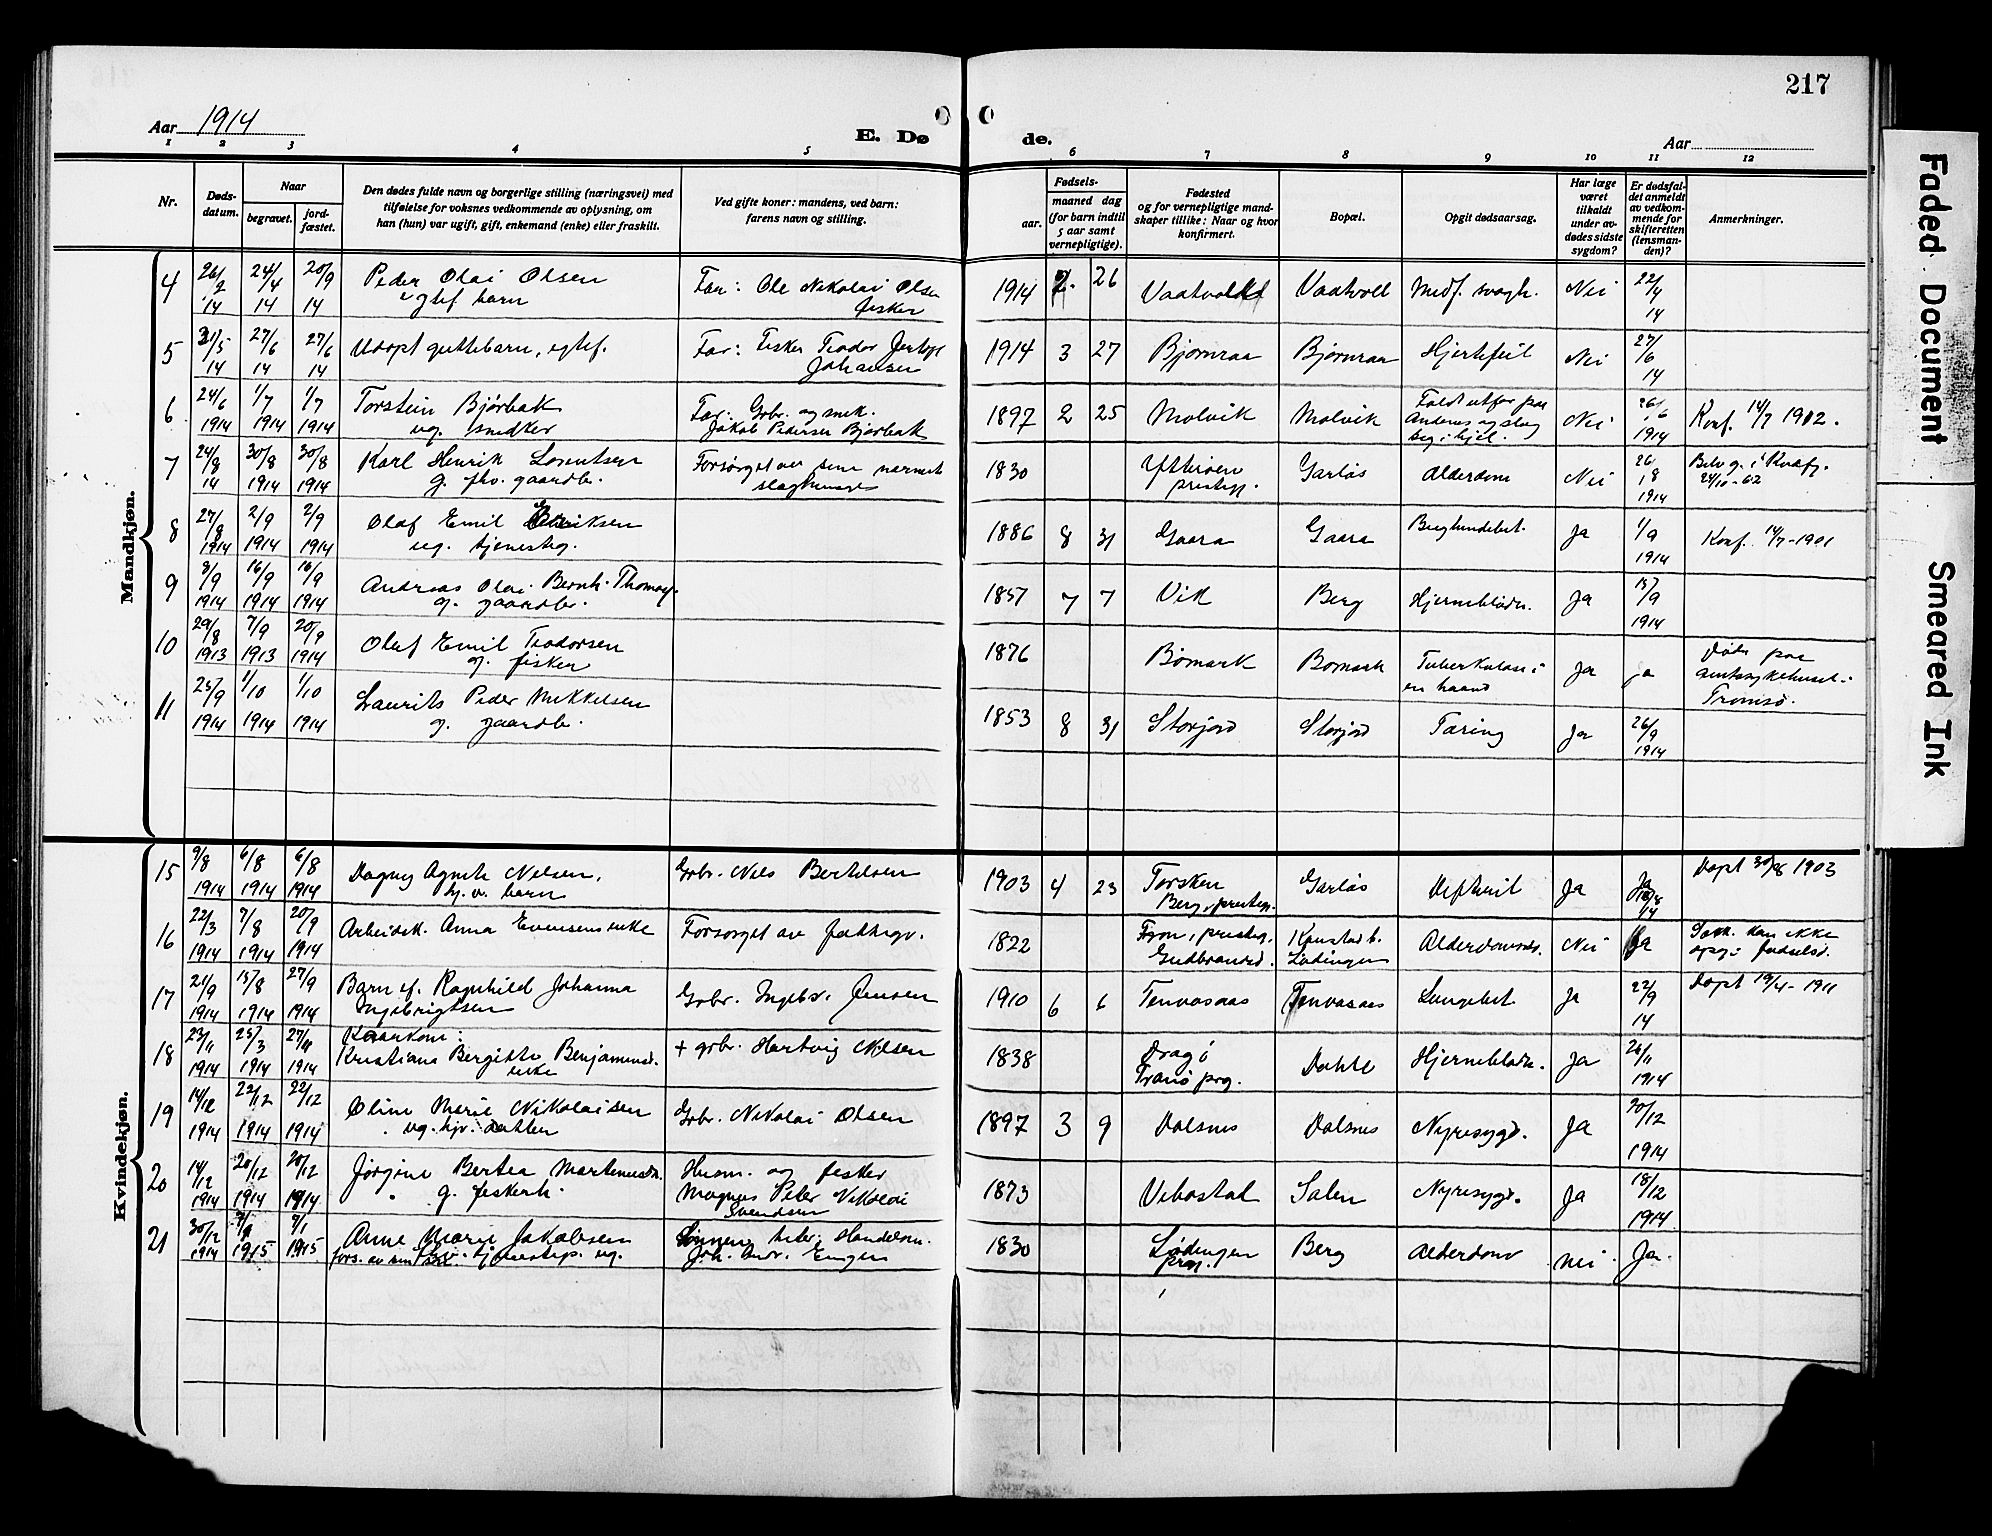 217
Aar 1914
E. Døde.
Aar
1 2 3 4 5 6 7 8 9 10 11 12
Nr.
Døds-
datum.
Naar
begravet.
jord-
fæstet.
Den dødes fulde navn og borgerlige stilling (næringsvei) med
tilføielse for voksnes vedkommende av oplysning, om
han (hun) var ugift, gift, enkemand (enke) eller fraskilt.
Ved gifte koner: mandens, ved barn:
farens navn og stilling.
Fødsels-
aar.
maaned dag
(for barn indtil
5 aar samt
vernepligtige).
Fødested
og for vernepligtige mand-
skaper tillike: Naar og hvor
konfirmert.
Bopæl.
Opgit dødsaarsag.
Har læge
været
tilkaldt
under av-
dødes sidste
sygdom?
Er dødsfal-
det anmeldt
av vedkom-
mende for
skifteretten
(lensman-
den)?
Anmerkninger.
Mandkjøn.
4 24/4 14 20/9 14 Peder Olai Olsen
egtef barn
Far: Ole Nikolai Olsen
fisker
1914 26 Vaatvoll Medf. svagh. Nei 22/4 14
5 31/5 14 27/6 14 27/6 14 Udøpt guttebarn, egtef.
Far: Fisker Teodor
Johansen
1914 3 27 Bjørnraa Bjørnraa Hjertefeil Nei 27/6 14
6 24/6 1914 1/7 1914 1/7 1914 Torstein Bjørbak
ug. snedker
Far: Gbr. og snek.
Jakob Pedersen Bjørbak
1897 2 25 Molvik Molvik Faldt utfor paa
Andenes og slog
seg ihjel. Nei 26/6 1914 Konf. 14/7 1912.
7 24/8 14 30/8 1914 30/8 1914 Karl Henrik Lorentsen
g. fhv. gaardbr.
Forsørget av sine nærmeste
slægtninge
1830 prestegj. Garløs Alderdom Nei 26/8 1914 i Kvæfj.
24/10-62
8 27/8 1914 2/9 1914 2/9 1914 Olaf Emil Eriksen
ug. tjenesteg.
1886 8 31 Gaara Gaara Ja 1/9 1914 Konf. 14/7-1901
9 3/9 1914 16/9 1914 16/9 1914 Andreas Olai Bernh. Thomas.
g. gaardbr.
1857 7 7 Vik Berg Hjerneblødn. Ja 15/9 1914
10 29/8 1913 7/9 1913 20/9 1914 Olaf Emil Teodorsen
g. fisker
1876 Bømark Bømark Tuberkulose i
en haand Ja ja Døde paa
amtssykehuset i
Tromsø.
11 25/9 1914 1/10 1914 1/10 1914 Laurits Peder Mikkelsen
g. gaardbr.
1853 8 31 Storjord Storjord Tæring Ja 26/9 1914
Kvindekjøn.
15 9/8 1914 6/8 1914 6/8 1914 Dagny Agnete Nilsen,
barn
Gbr. Nils Bertelsen
1903 4 23 Torsken
Berg, prestegj. Garløs Difterit Ja Ja 14 Døpt 30/8 1903
16 22/3 1914 7/8 1914 20/9 1914 Arbeidsk. Anna Evensens enke
Forsørget av fattigv.
1822 Fron, prestegj.
Gudbrandsd. Kanstad b.
Lødingen Alderdomssv. Nei Ja kan ikke
opgi fødselsd.
17 21/9 1914 15/8 1914 27/9 1914 Barn ef. Ragnhild Johanna
Ingebrigtsen
Gbr. Ingebr. Jensen
1910 6 6 Tenvasaas Tenvasaas Lungebet. Ja 22/9 14 Døpt 19/4-1911
18 23/11 1914 25/3 1914 27/11 1914 Kaarkone:
Kristiana Bergitte Benjaminsd.
enke
+ gbr. Hartvig Nilsen
1838 Dragø
Tranø prg. Dahle Hjerneblødn. Ja 26/11 1914
19 14/12 1914 22/12 1914 22/12 1914 Oline Marie Nikolaisen
ug. hjv. datter
Gbr. Nikolai Olsen
1897 3 9 Valsnes Valsnes Nyresygd. Ja 20/12 1914
20 14/12 1914 20/12 1914 20/12 1914 Jørgine Bertea Martenusdt.
g. fiskerk.
Husm. og fisker
Magnus Peter Nikolai
Svendsen
1873 Vebostad Salen Nyresygd. Ja 18/12 1914
21 30/12 1914 9/1 1915 9/1 1915 Anne Marie Jakobsen
fors. av tjenestep. ug.
Handelsm.
Joh. Andr. Engen
1830 Lødingen
prg. Berg Alderdom Nei Ja.
Faded Document
Smeared Ink